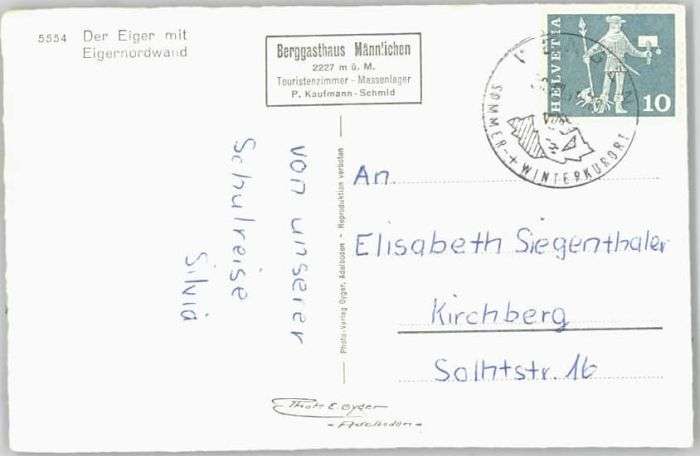 5554 Der Eiger mit
Eigernordwand
Berggasthaus Männlichen
2227 m ü. M.
Touristenzimmer - Massenlager
P. Kaufmann-Schmid
HELVETIA
10
SOMMER- + WINTERKURORT
von unserer
Schulreise
Silvia
Photo-Verlag Gyger, Adelboden - Reproduktion verboten
An.
Elisabeth Siegenthaler
Kirchberg
Solhtstr. 16
Photo E. Gyger
- Adelboden -